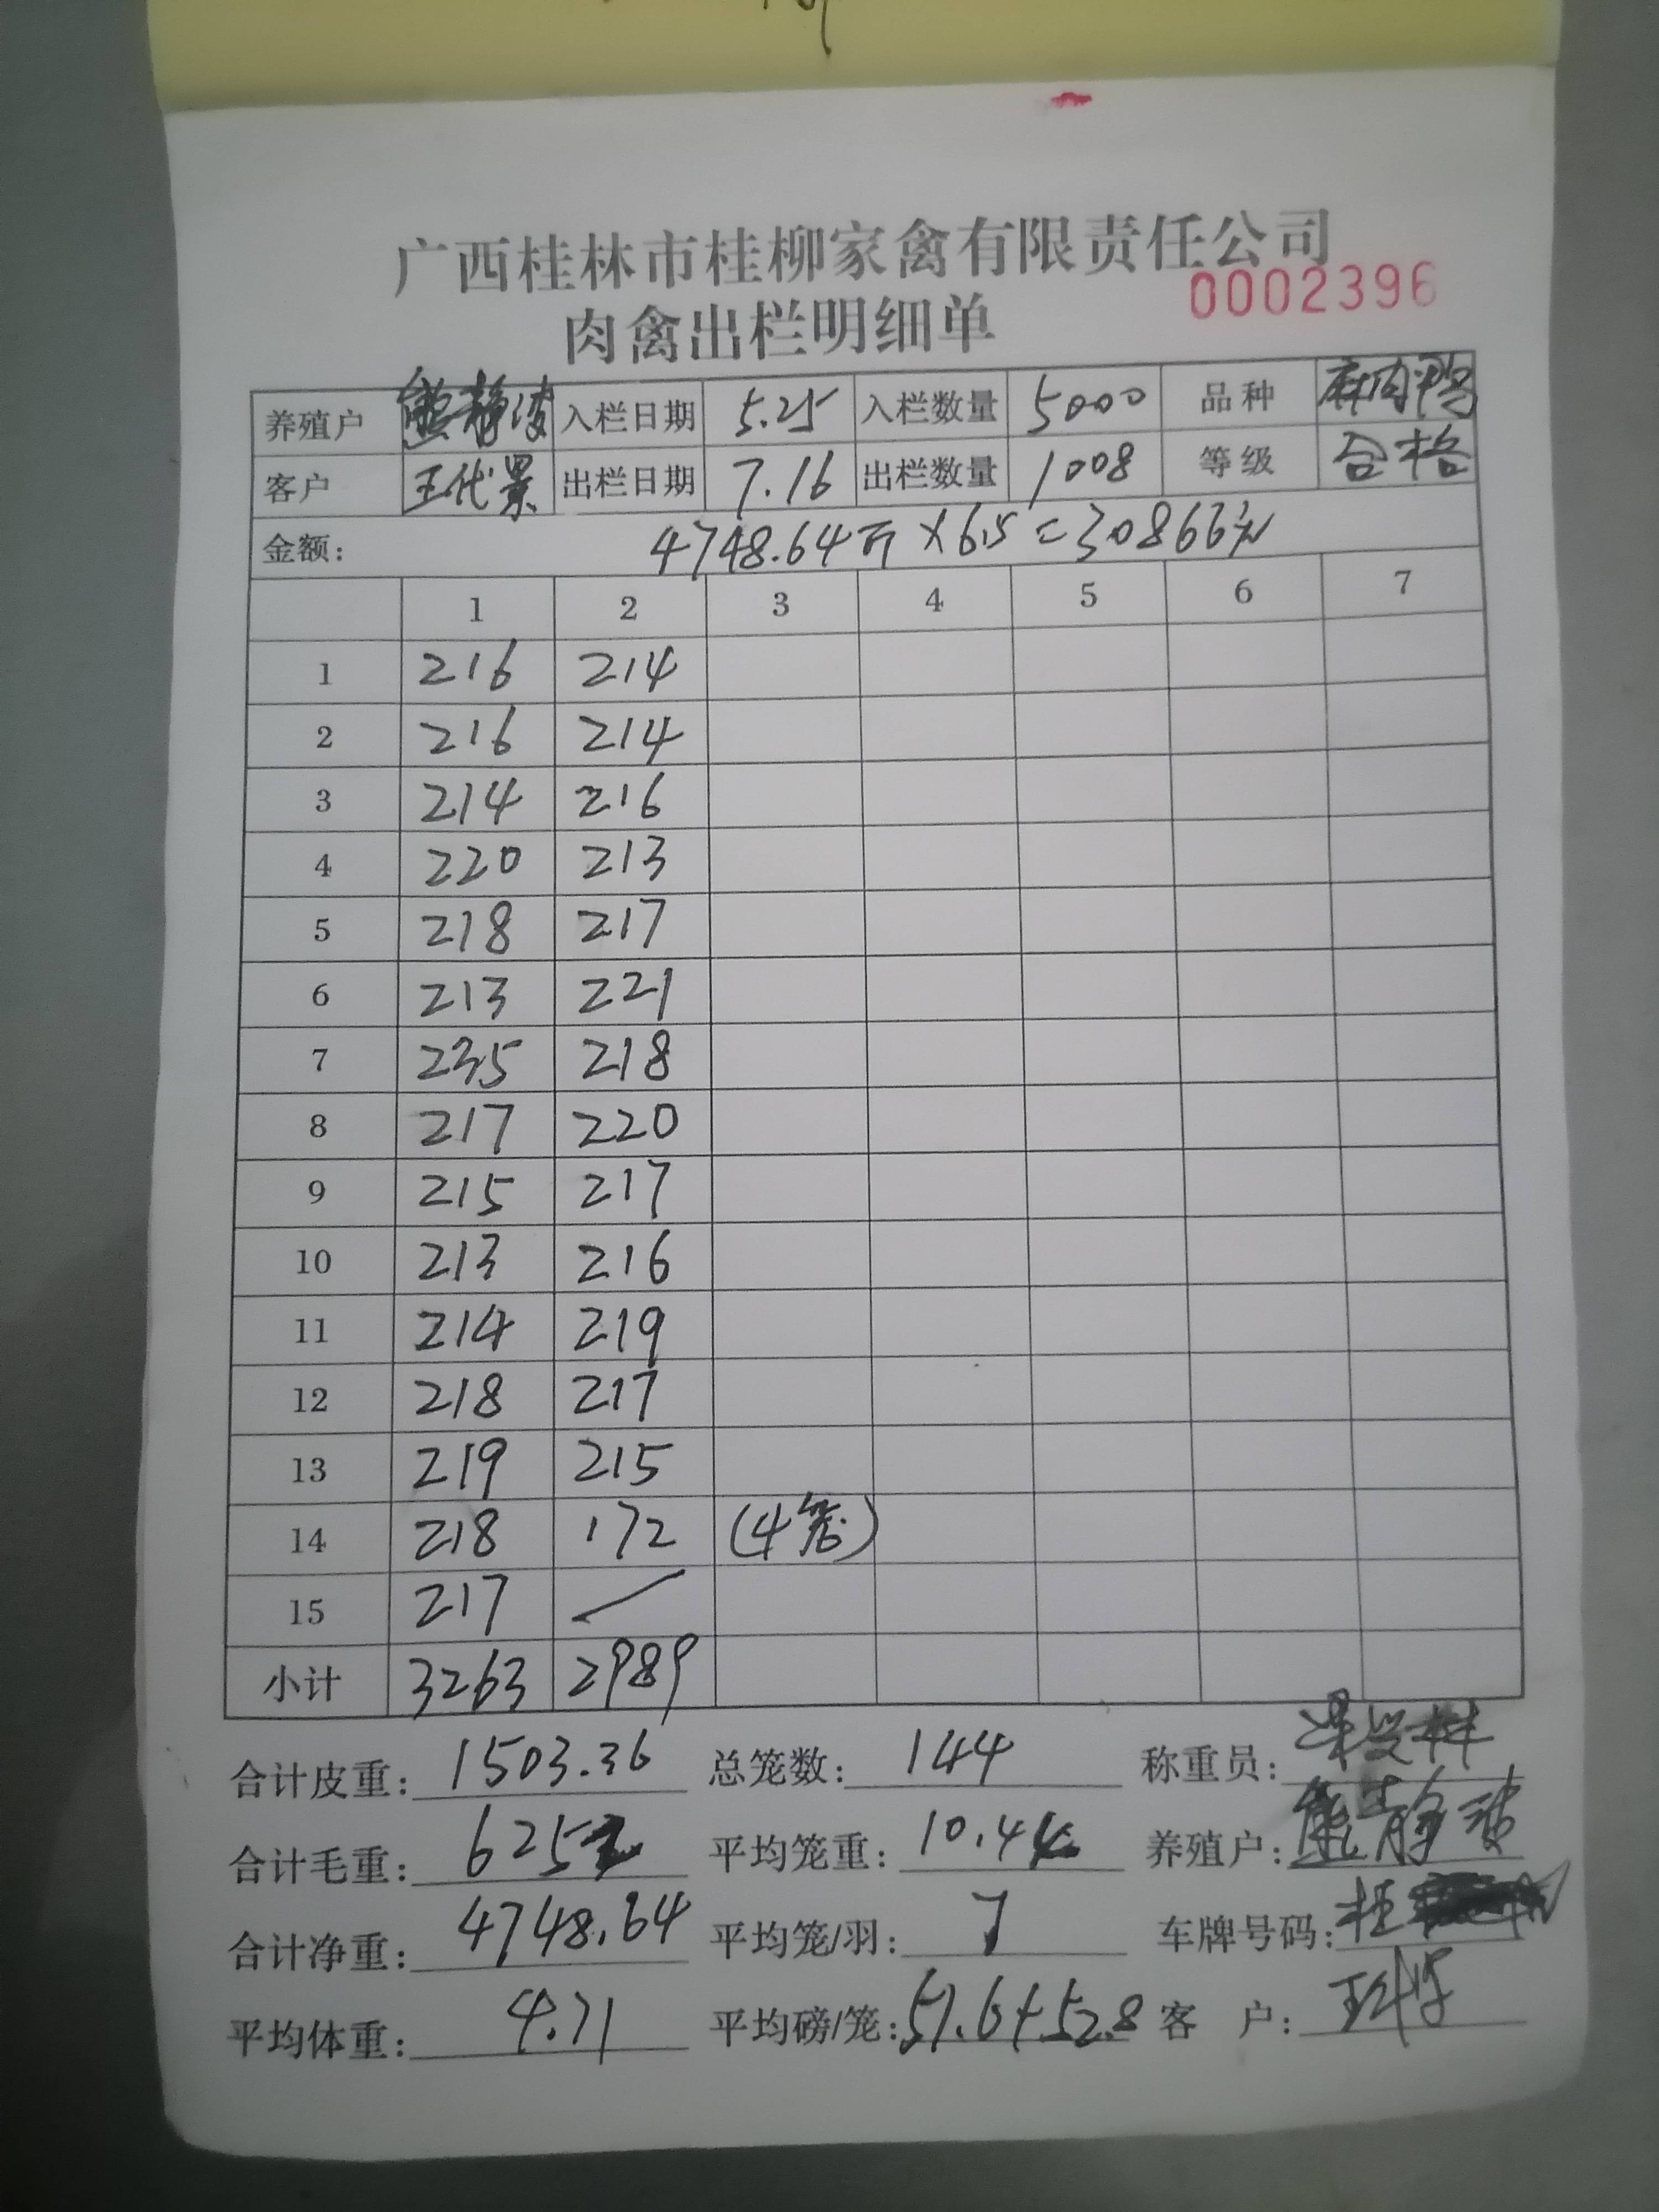 广西桂林市桂柳家禽有限责任公司
0002396
肉禽出栏明细单
养殖户 熊静波 入栏日期 5.25 入栏数量 5000 品种 麻肉鸭
客户 王代景 出栏日期 7.16 出栏数量 1008 等级 合格
金额: 4748.64斤×6.5=30866元
1 2 3 4 5 6 7
1 216 214
2 216 214
3 214 216
4 220 213
5 218 217
6 213 221
7 235 218
8 217 220
9 215 217
10 213 216
11 214 219
12 218 217
13 219 215
14 218 172 (4笼)
15 217
小计 3263 2989
合计皮重: 1503.36 总笼数: 144 称重员:
合计毛重: 6252 平均笼重: 10.44 养殖户: 熊静波
合计净重: 4748.64 平均笼/羽: 7 车牌号码: 桂
平均体重: 4.71 平均磅/笼: 51.6+52.8 客 户: